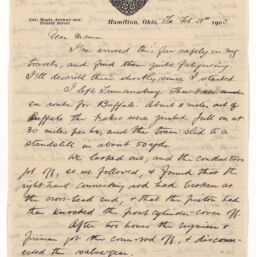 Cor. Maple Avenue and
Fourth Street
Hamilton, Ohio, Feb 21st 1905
Dear Mama
I've arrived this far safely in my
travels, and find them quite fatiguing.
I'll describe them shortly, since I started.
I left
en route for Buffalo. About 8 miles out of
Buffalo the brakes were jammed full on at
30 miles per hr, and the train slid to a
standstill in about 50 yds.
We looked out, and the conductors
got off, so we followed, & found that the
right-hand connecting rod had broken at
the cross-head end, & that the piston had
then knocked the front cylinder-cover off.
After two hours the Engineer &
fireman got the conn-rod off, & discon-
nected the valve-gear.